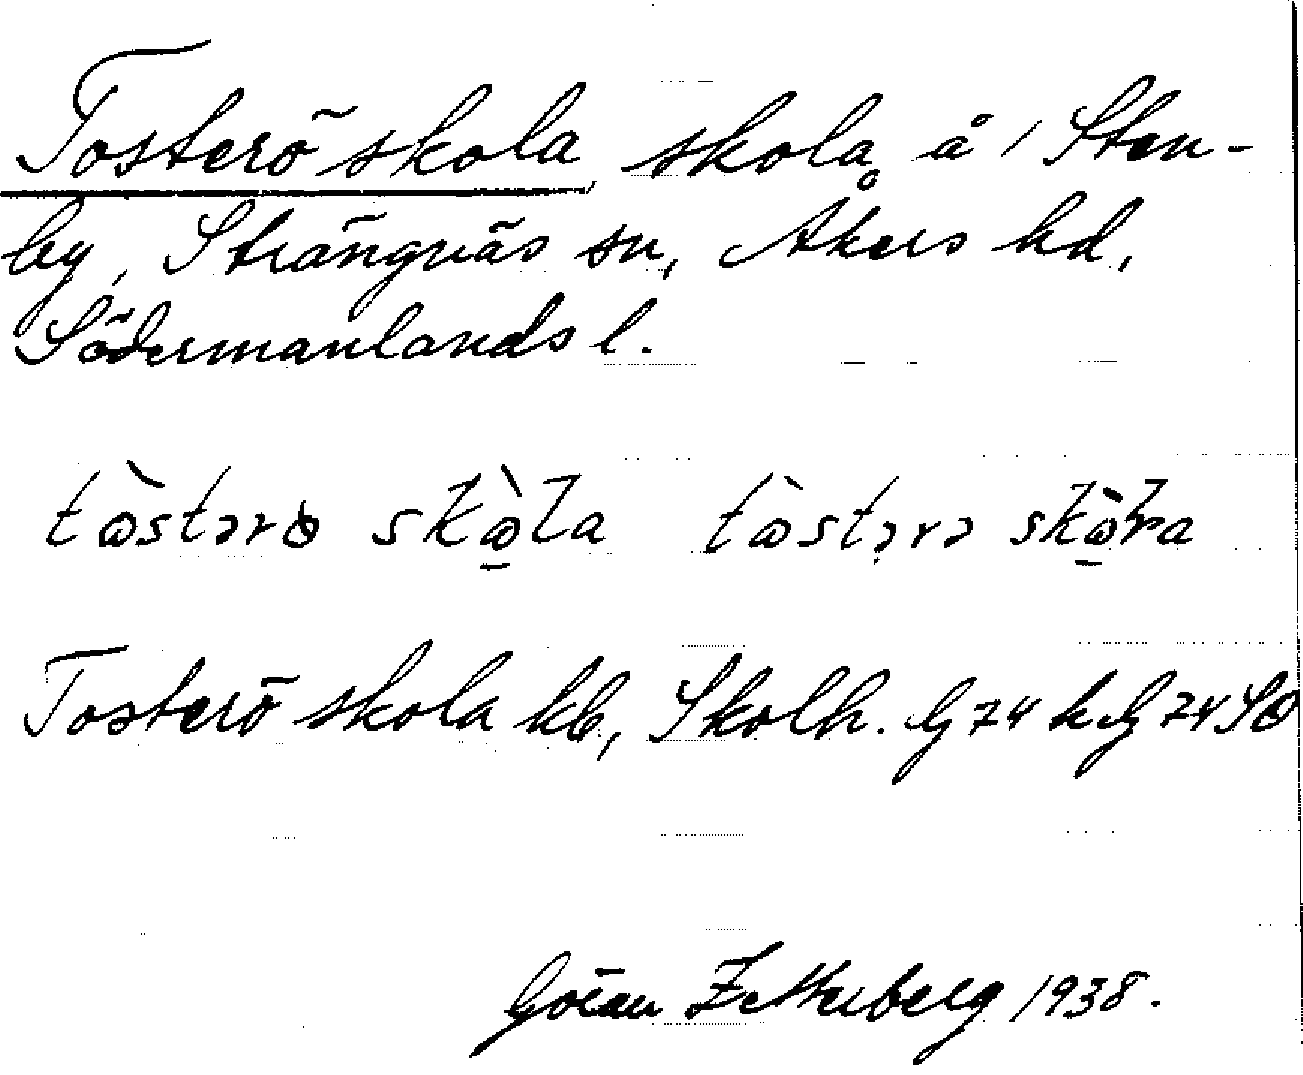 Tosterö skola, skola å 1 Sten-
by, Strängnäs sn, Åkers hd,
Södermanlands l.
tòstərö skòla tòstərə skòla
Tosterö skola kb, Skolh. G 74 k G 74 SO
Göran Zetterberg 1938.